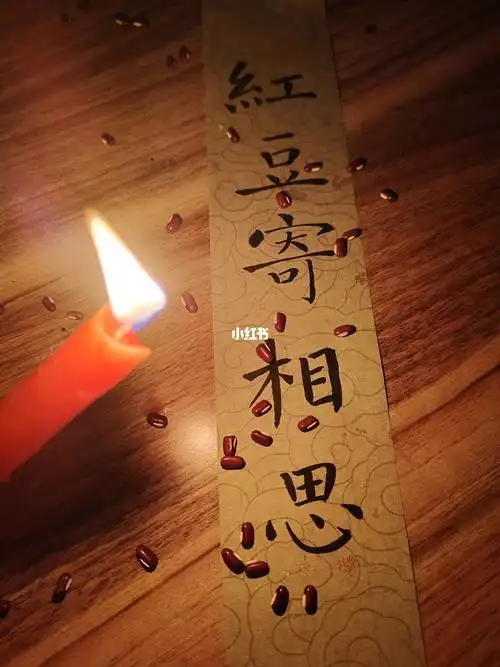 紅豆寄相思
小红书